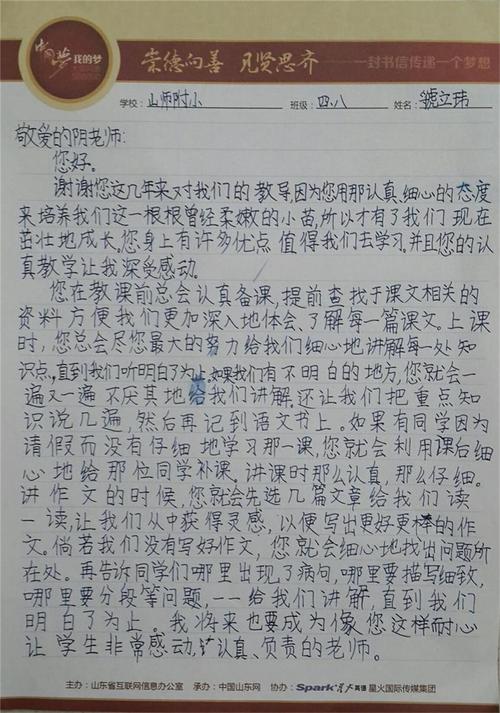 中国梦 我的梦
崇德向善 见贤思齐 一封书信传递一个梦想
学校: 山师附小 班级: 四.八 姓名: 虢立玮
敬爱的阴老师:
您好。
谢谢您这几年来对我们的教导,因为您用那认真、细心的态度
来培养我们这一根根曾经柔嫩的小苗,所以才有了我们现在
茁壮地成长,您身上有许多优点值得我们去学习,并且您的认
真教学让我深受感动。
您在教课前总会认真备课,提前查找于课文相关的
资料方便我们更加深入地体会、了解每一篇课文。上课
时,您总会尽您最大的努力给我们细心地讲解每一处知
识点,直到我们听明白了为止,如果我们有不明白的地方,您就会一
遍又一遍不厌其地给我们讲解,还让我们把重点知
识说几遍,然后再记到语文书上。如果有同学因为
请假而没有仔细地学习那一课,您就会利用课后细
心地给那位同学补课。讲课时那么认真,那么仔细。
讲作文的时候,您就会先选几篇文章给我们读
一读,让我们从中获得灵感,以便写出更好更棒的作
文。倘若我们没有写好作文,您就会细心地找出问题所
在处。再告诉同学们哪里出现了病句,哪里要描写细致,
哪里要分段等问题,一一给我们讲解,直到我们
明白了为止。我将来也要成为像您这样耐心
让学生非常感动,认真、负责的老师。
主办:山东省互联网信息办公室 承办:中国山东网 协办:Spark 星火英语 星火国际传媒集团